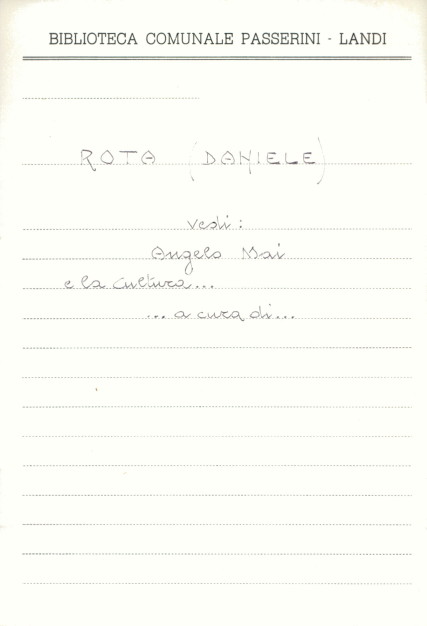 BIBLIOTECA COMUNALE PASSERINI - LANDI
ROTA (DANIELE)
vedi:
Angelo Mai
e la cultura...
... a cura di...